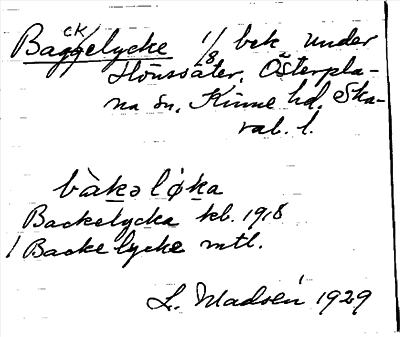 Baggelycke 1/8 bek. under
ck
Hönsäter, Österpla-
na sn, Kinne hd, Ska-
rab. l.
bàkə lø̀ka
Backelycka kb. 1918
/ Backelycke mtl.
L. Madsén 1929